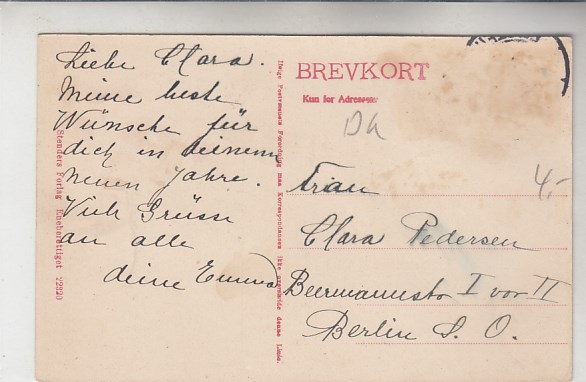 Liebe Clara.
Meine beste
Wünsche für
dich in deinem
neuen Jahre.
Viele Grüsse
an alle
deine Emma
Stenders Forlag Eneberettiget 22320
Ifølge Postvæsenets Forordning maa Korrespondancen ikke overskride denne Linie.
BREVKORT
Kun for Adressen:
DK
4,-
Frau
Clara Pedersen
Beermannstr I vor II
Berlin S. O.